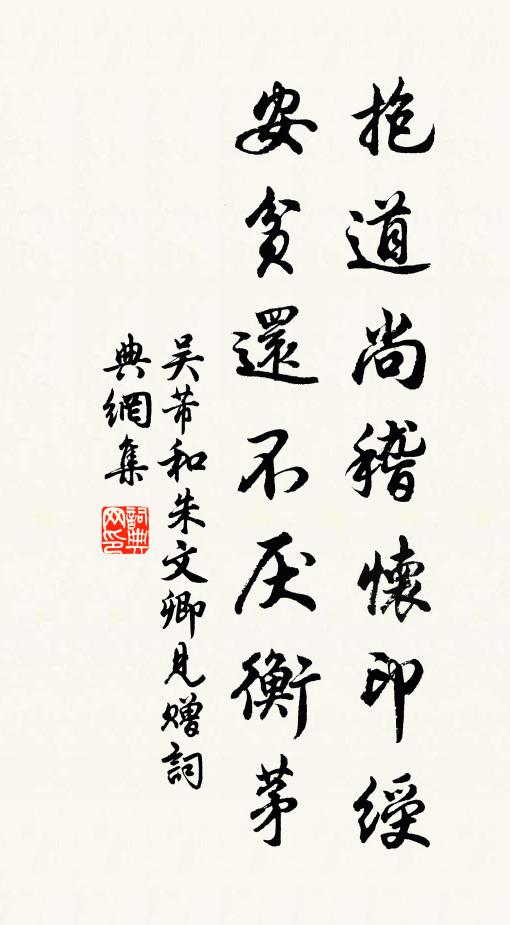 抱道尚稽懷印綬
安貧還不厌衡茅
吴芾和朱文卿見贈詞
典網集
詞典网印